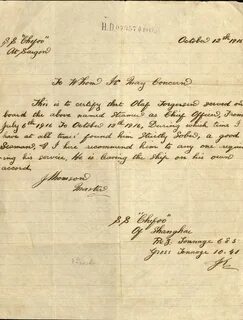 S S "Chefoo" October 12th 1916
At Saigon
To Whom It May Concern
This is to certify that Olaf Torgersen served on
board the above named Steamer as Chief Officer, From
July 6th 1916 To October 12th 1916, During which time I
have at all times found him Strictly Sober, a good
Seaman, & I hire recommend him to any one requir
ing his service, He is leaving the ship on his own
accord.
J Thomson
Master
S S "Chefoo"
Of Shanghai
Tonnage 685
Gross Tonnage 10.41